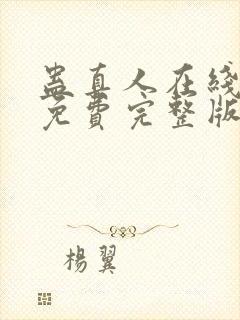 蛊真人在线
免費完整版
楊翼